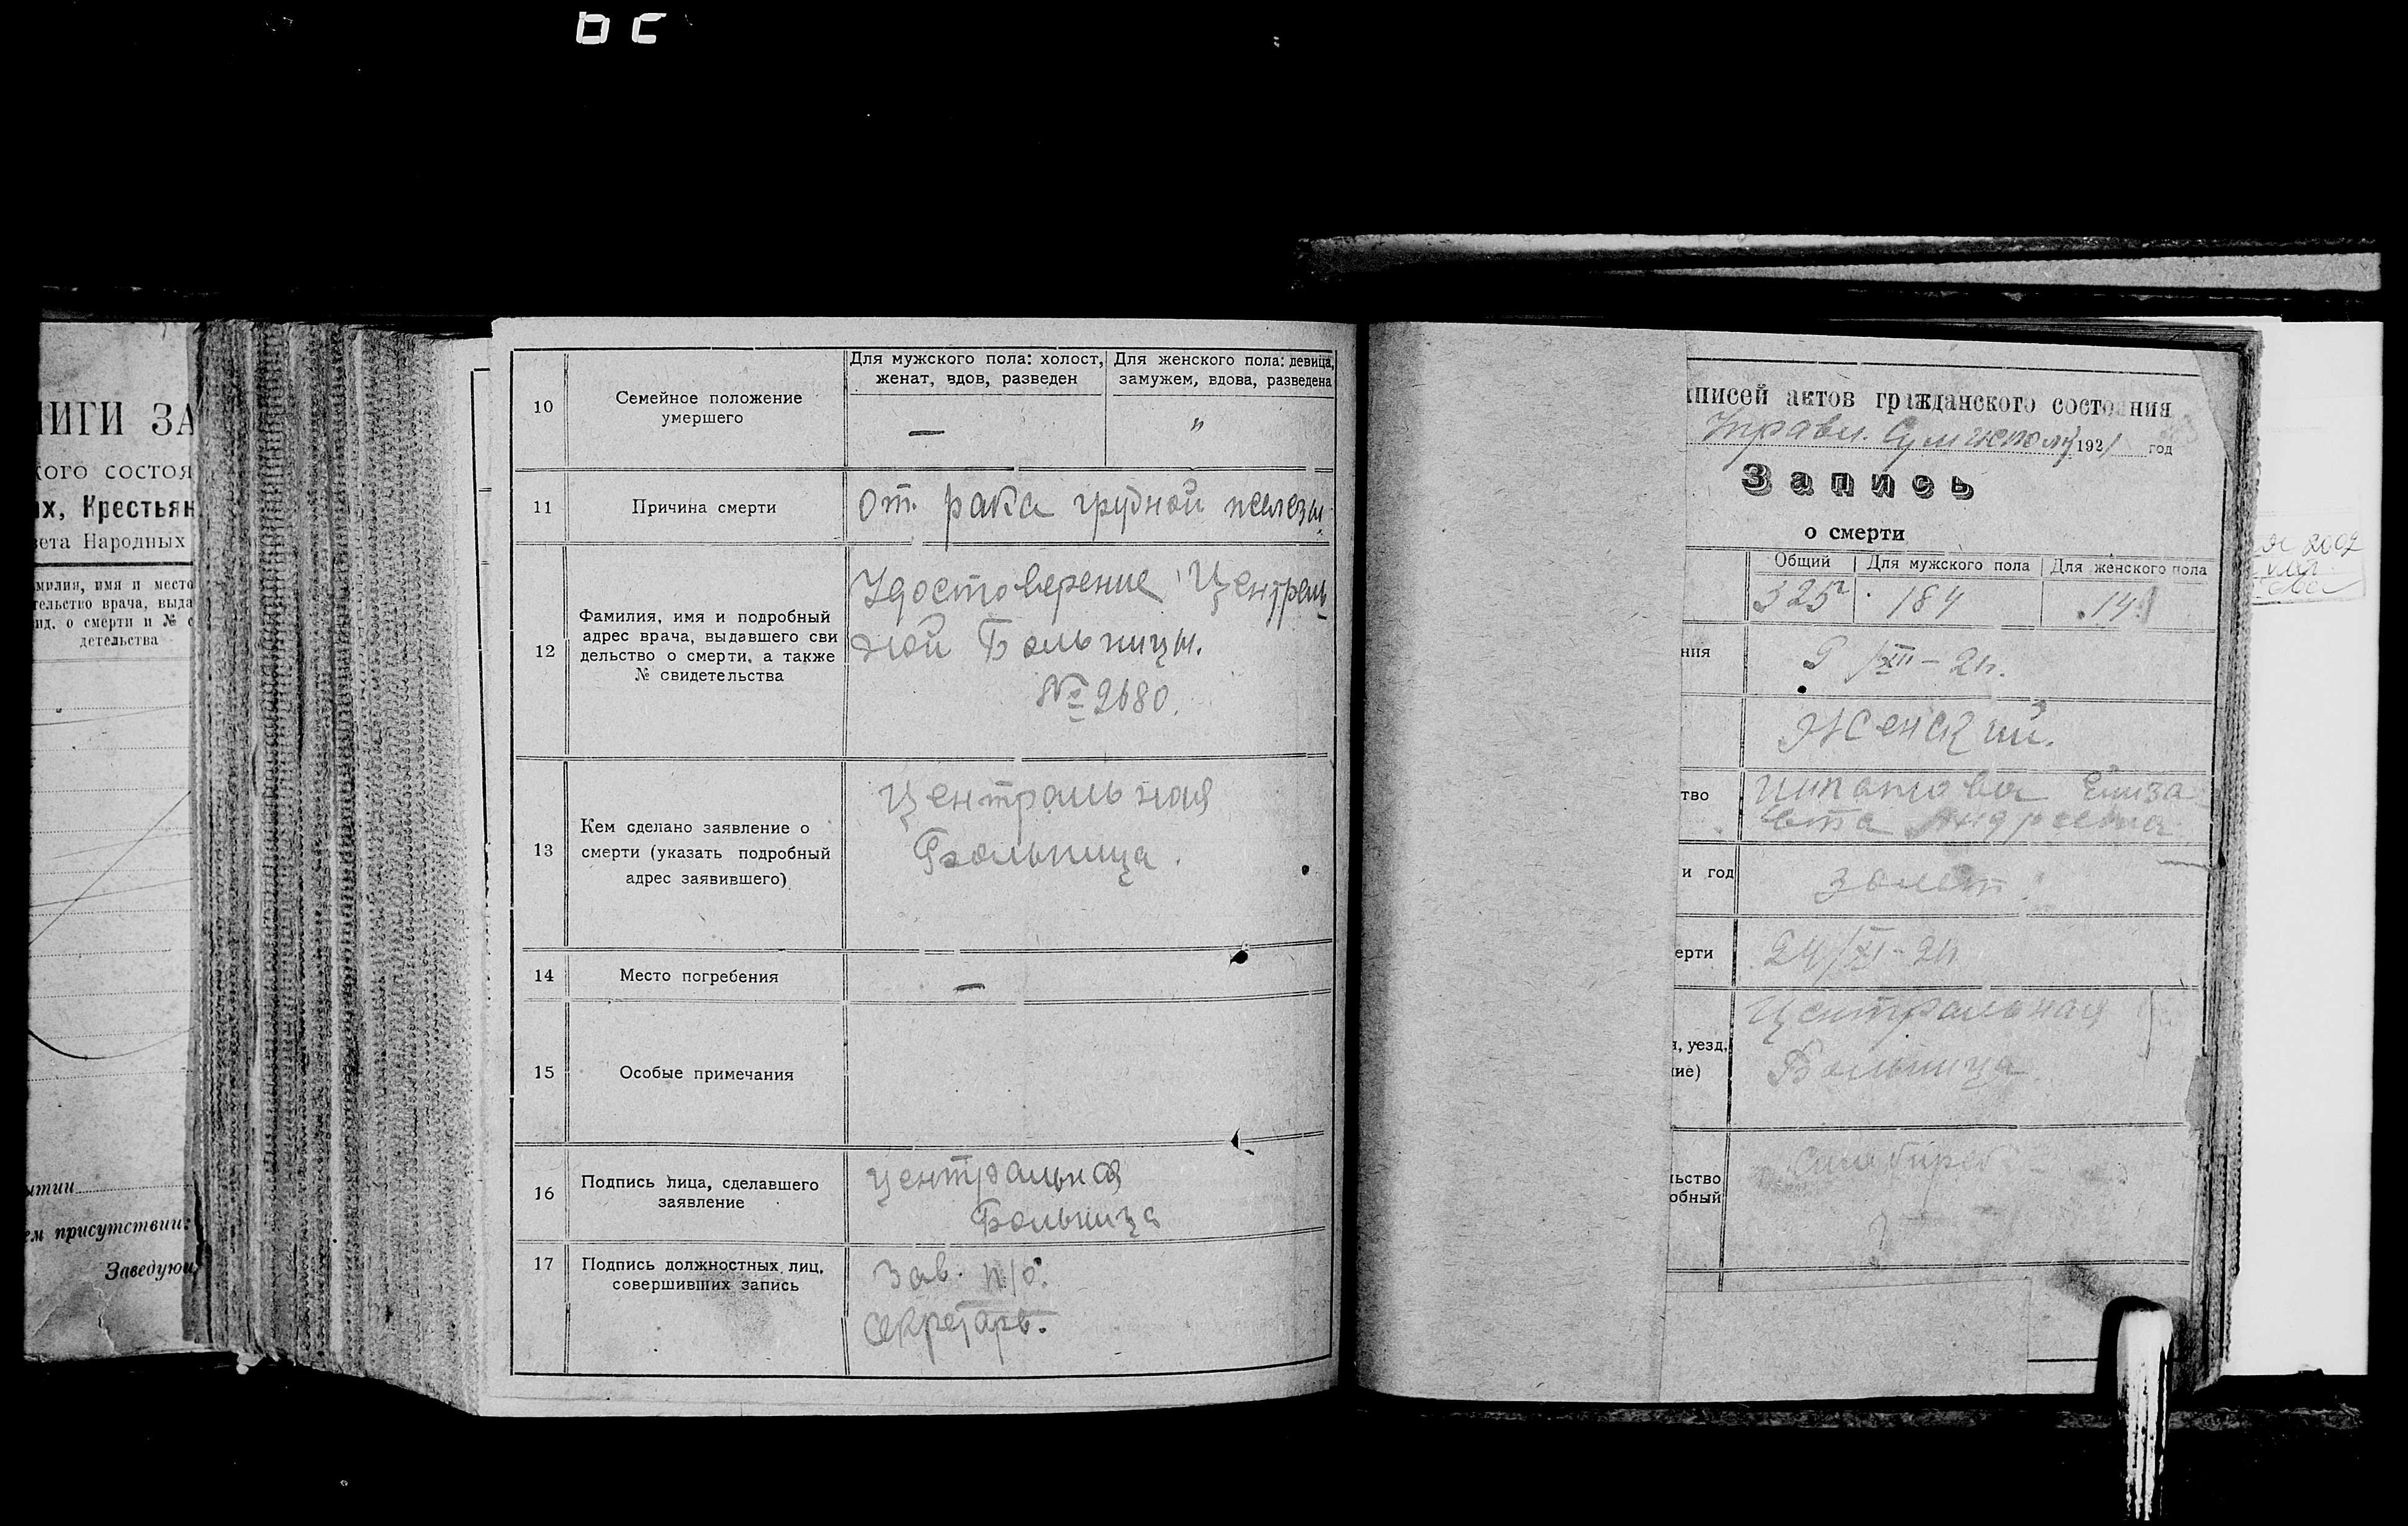 ИГИ ЗА
кого состоя
их, Крестьян
вета Народных
амилия, имя и место
тельство врача, выда
ид. о смерти и № с
детельства
ытии
ем присутствии:
Заведуюц
10
Семейное положение
умершего
Для мужского пола: холост,
женат, вдов, разведен
—
Для женского пола: девица,
замужем, вдова, разведена
"
11
Причина смерти
От рака грудной железы.
12
Фамилия, имя и подробный
адрес врача, выдавшего сви
дельство о смерти, а также
№ свидетельства
Удостоверение Централь
ной Больницы.
№ 2680.
13
Кем сделано заявление о
смерти (указать подробный
адрес заявившего)
Центральная
Больница.
14
Место погребения
—
15
Особые примечания
16
Подпись лица, сделавшего
заявление
Центральная
Больница
17
Подпись должностных лиц,
совершивших запись
Зав. п/о.
Секретарь.
аписей актов гражданского состояния
Управл. 1921 год
Запись
о смерти
Общий
Для мужского пола
Для женского пола
325
184
141
ния
/XII-21г.
Женский.
тво
Елиза
вета
и год
30 лет.
ерти
24/XI-21
Центральная
я, уезд,
ие)
Больница
ьство
обный